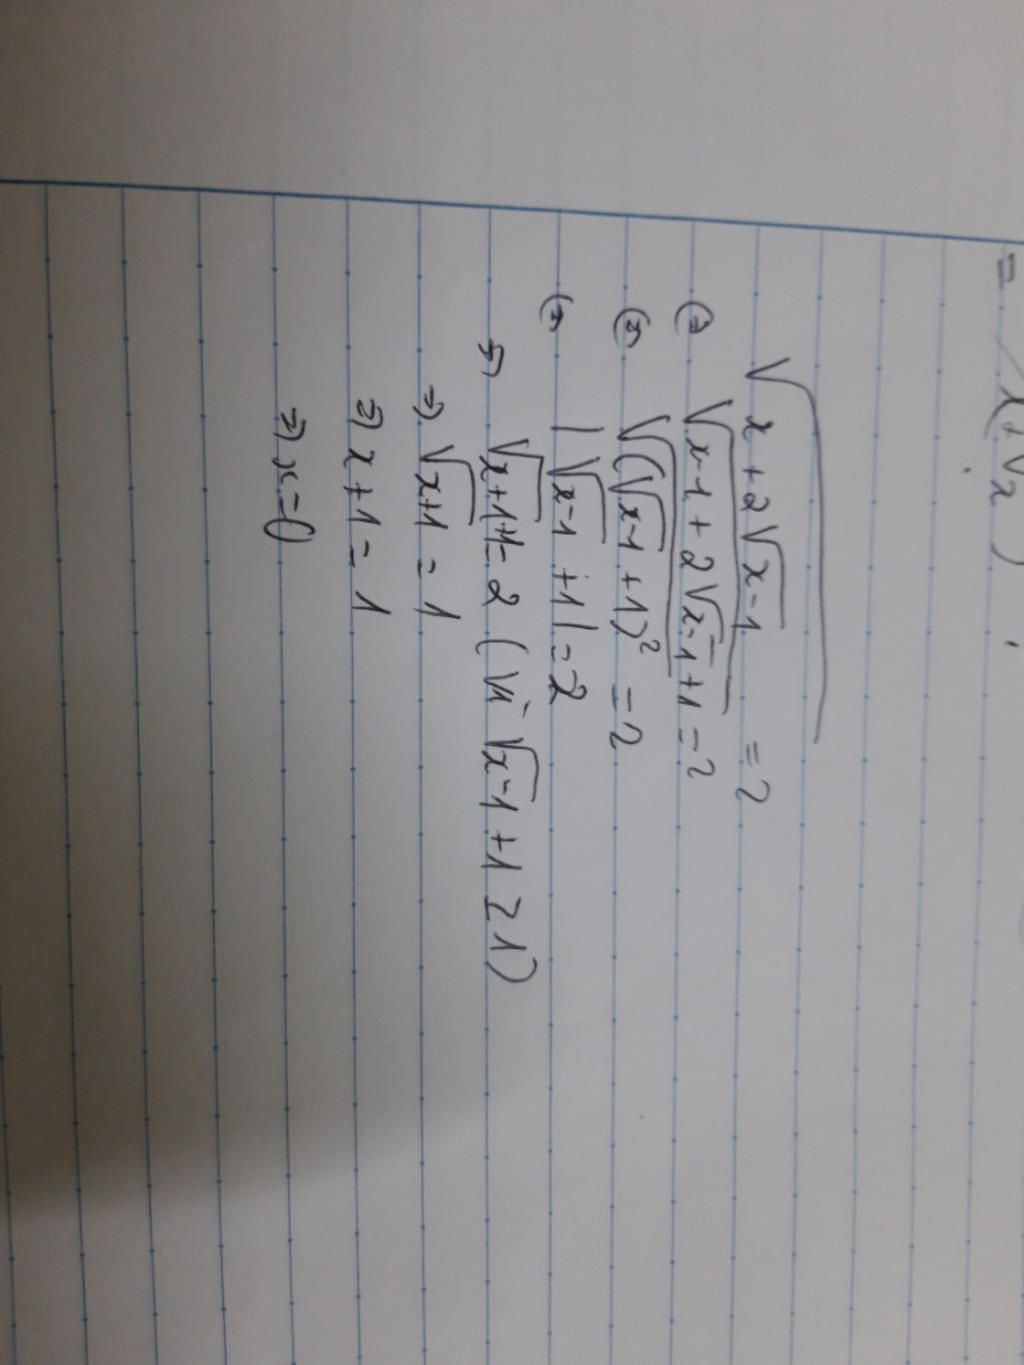 = x(1+√x)
√(x+2√(x-1)) = 2
(=) √(x-1+2√(x-1)+1) = 2
(=) √((√(x-1)+1)²) = 2
(=) |√(x-1)+1| = 2
=) √(x+1)+1 = 2 (Vì √(x-1)+1 ≥ 1)
=) √(x+1) = 1
=) x+1 = 1
=) x = 0